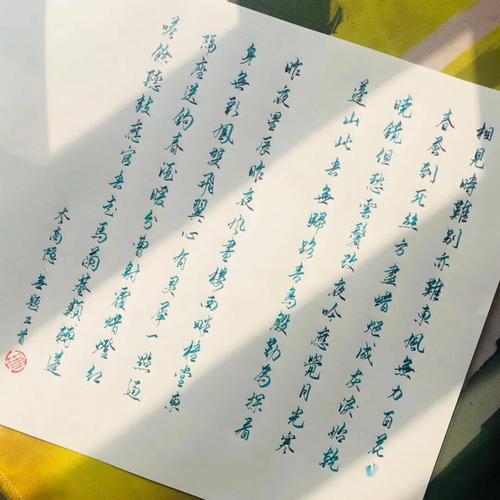 相見時難別亦難東風無力百花
春蚕到死絲方盡蜡炬成灰淚始乾
曉鏡但愁雲鬢改夜吟應覺月光寒
蓬山此去無歸路青鳥殷勤為探看
昨夜星辰昨夜風畫樓西畔桂堂東
身無彩鳳雙飛翼心有灵犀一點通
隔座送鉤春酒暖分曹射覆蜡燈紅
嗟餘聽鼓應官去走馬蘭臺類轉蓬
李商隱·無題二首